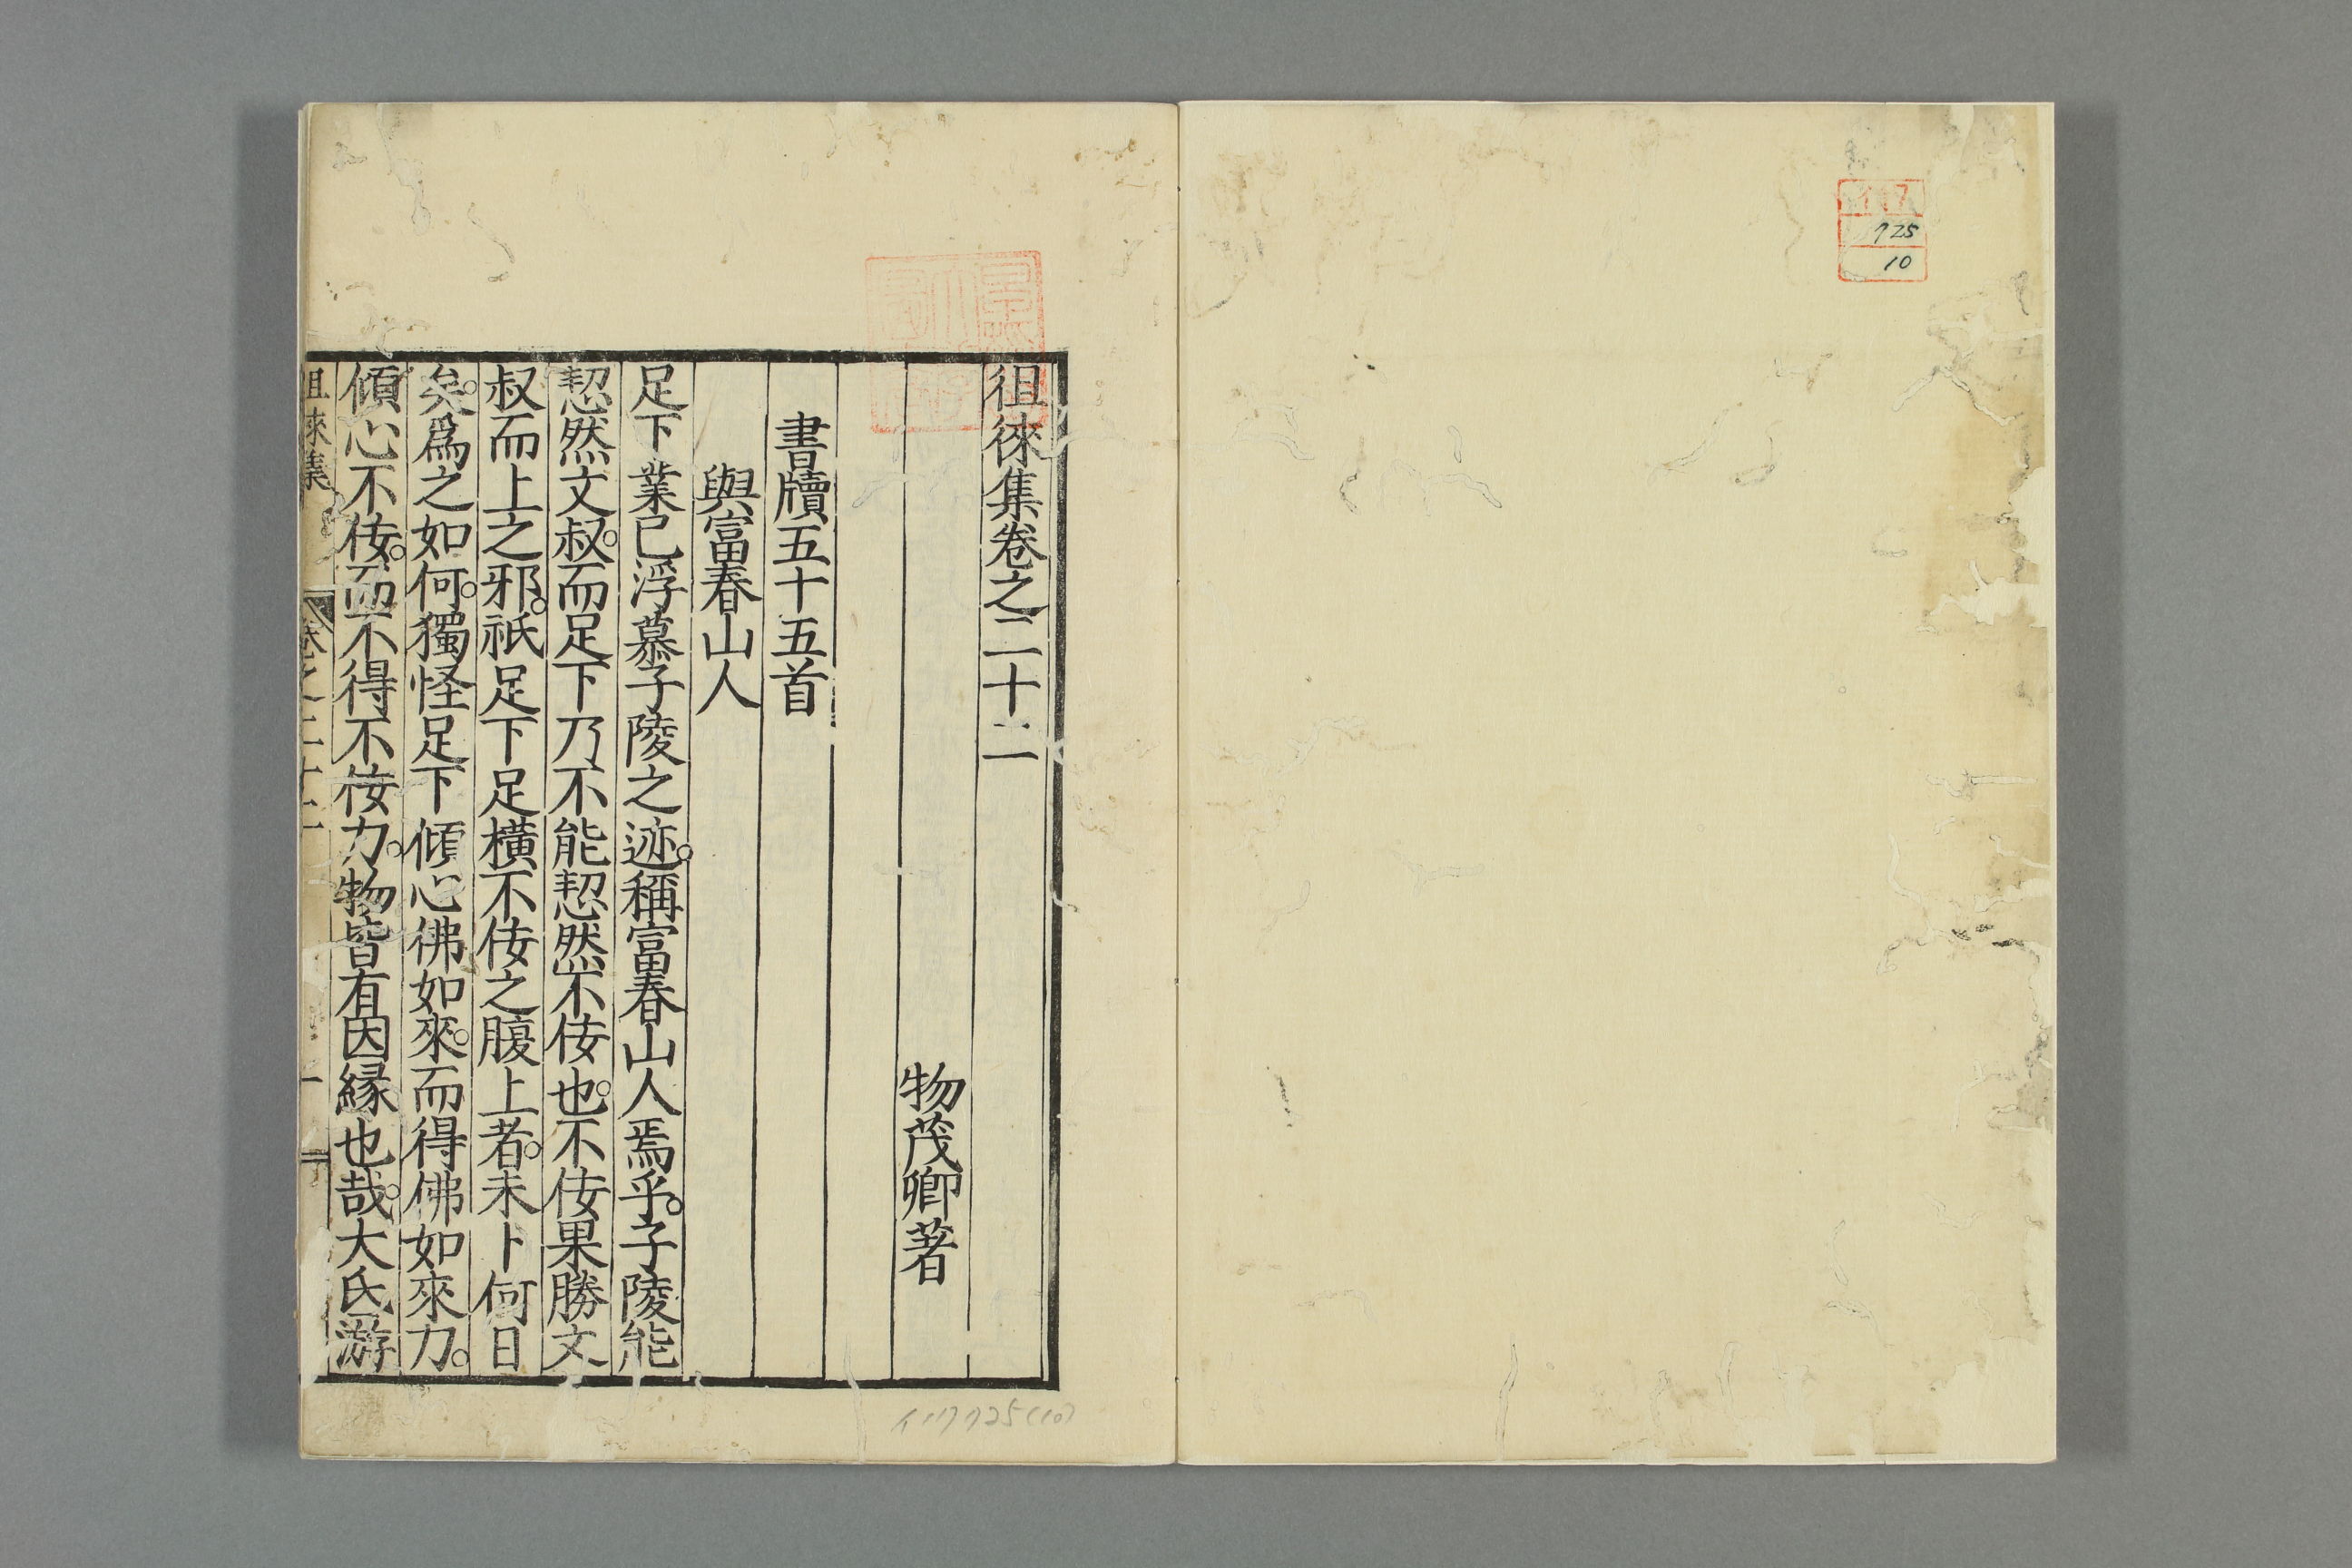 725
10
徂徠集卷之二十二
物茂卿著
書牘五十五首
與富春山人
足下業已浮慕子陵之迹。稱富春山人焉乎。子陵能
恝然文叔。而足下乃不能恝然不佞也。不佞果勝文
叔而上之邪。祇足下足橫不佞之腹上者。未卜何日
矣。爲之如何。獨怪足下傾心佛如來。而得佛如來力。
傾心不佞。而不得不佞力。物皆有因縁也哉。大氐游
徂徠集
卷之二十二
一
イ17 725(10)